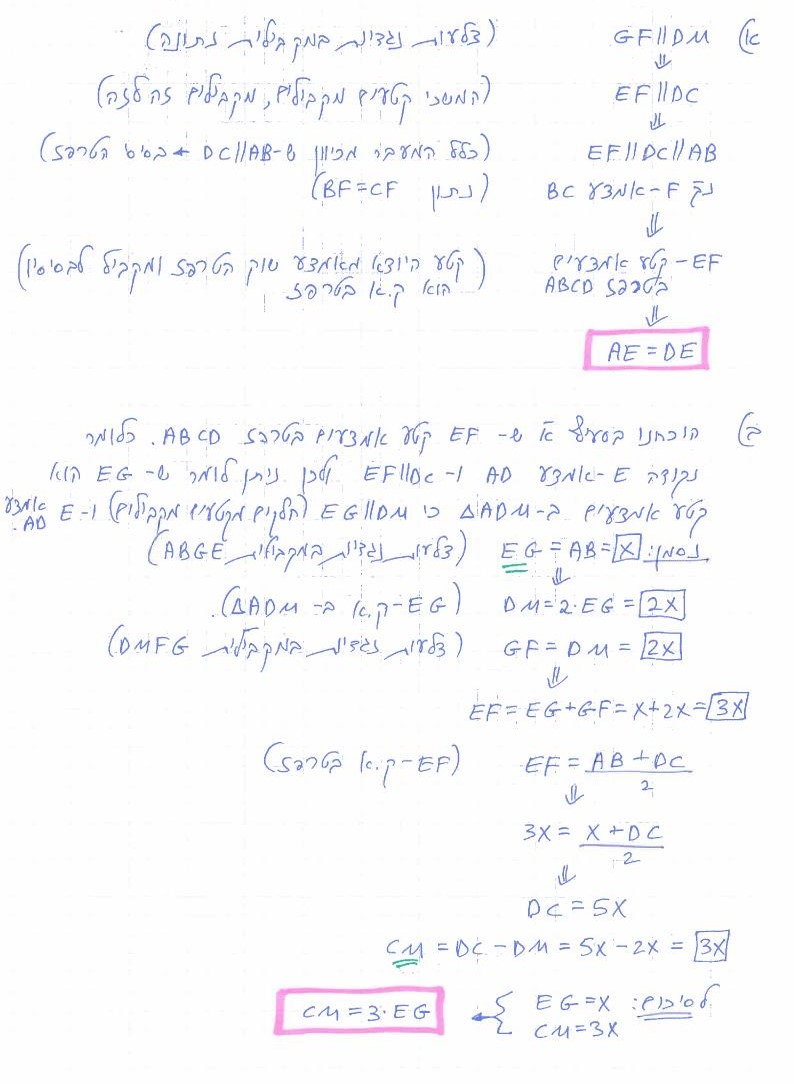 א) GF||DM (צלעות נגדיות במקבילית נתונה)
⇓
EF||DC (המשכי קטעים מקבילים, מקבילים זה לזה)
⇓
EF||DC||AB (כלל המעבר מכיוון ש-DC||AB ← בסיסי הטרפז)
נק' F-אמצע BC (נתון BF=CF)
⇓
EF- קטע אמצעים (קטע היוצא מאמצע שוק הטרפז ומקביל לבסיסיו
בטרפז ABCD הוא ק.א בטרפז)
⇓
AE=DE
ב) הוכחנו בסעיף א' ש- EF קטע אמצעים בטרפז ABCD. כלומר
נקודה E-אמצע AD ו- EF||DC ולכן ניתן לומר ש- EG הוא
קטע אמצעים ב-ΔADM כי EG||DM (חלקים מקטעים מקבילים) ו- E אמצע AD.
נסמן: EG = AB = x (צלעות נגדיות במקבילית ABGE)
⇓
DM=2·EG = 2x (EG-ק.א ב- ΔADM).
GF = DM = 2x (צלעות נגדיות במקבילית DMFG)
⇓
EF = EG+GF = x+2x = 3x
EF = (AB+DC)/2 (EF-ק.א בטרפז)
⇓
3x = (x+DC)/2
⇓
DC = 5x
CM = DC-DM = 5x-2x = 3x
לסיכום: { EG=x
CM=3x
← CM=3·EG